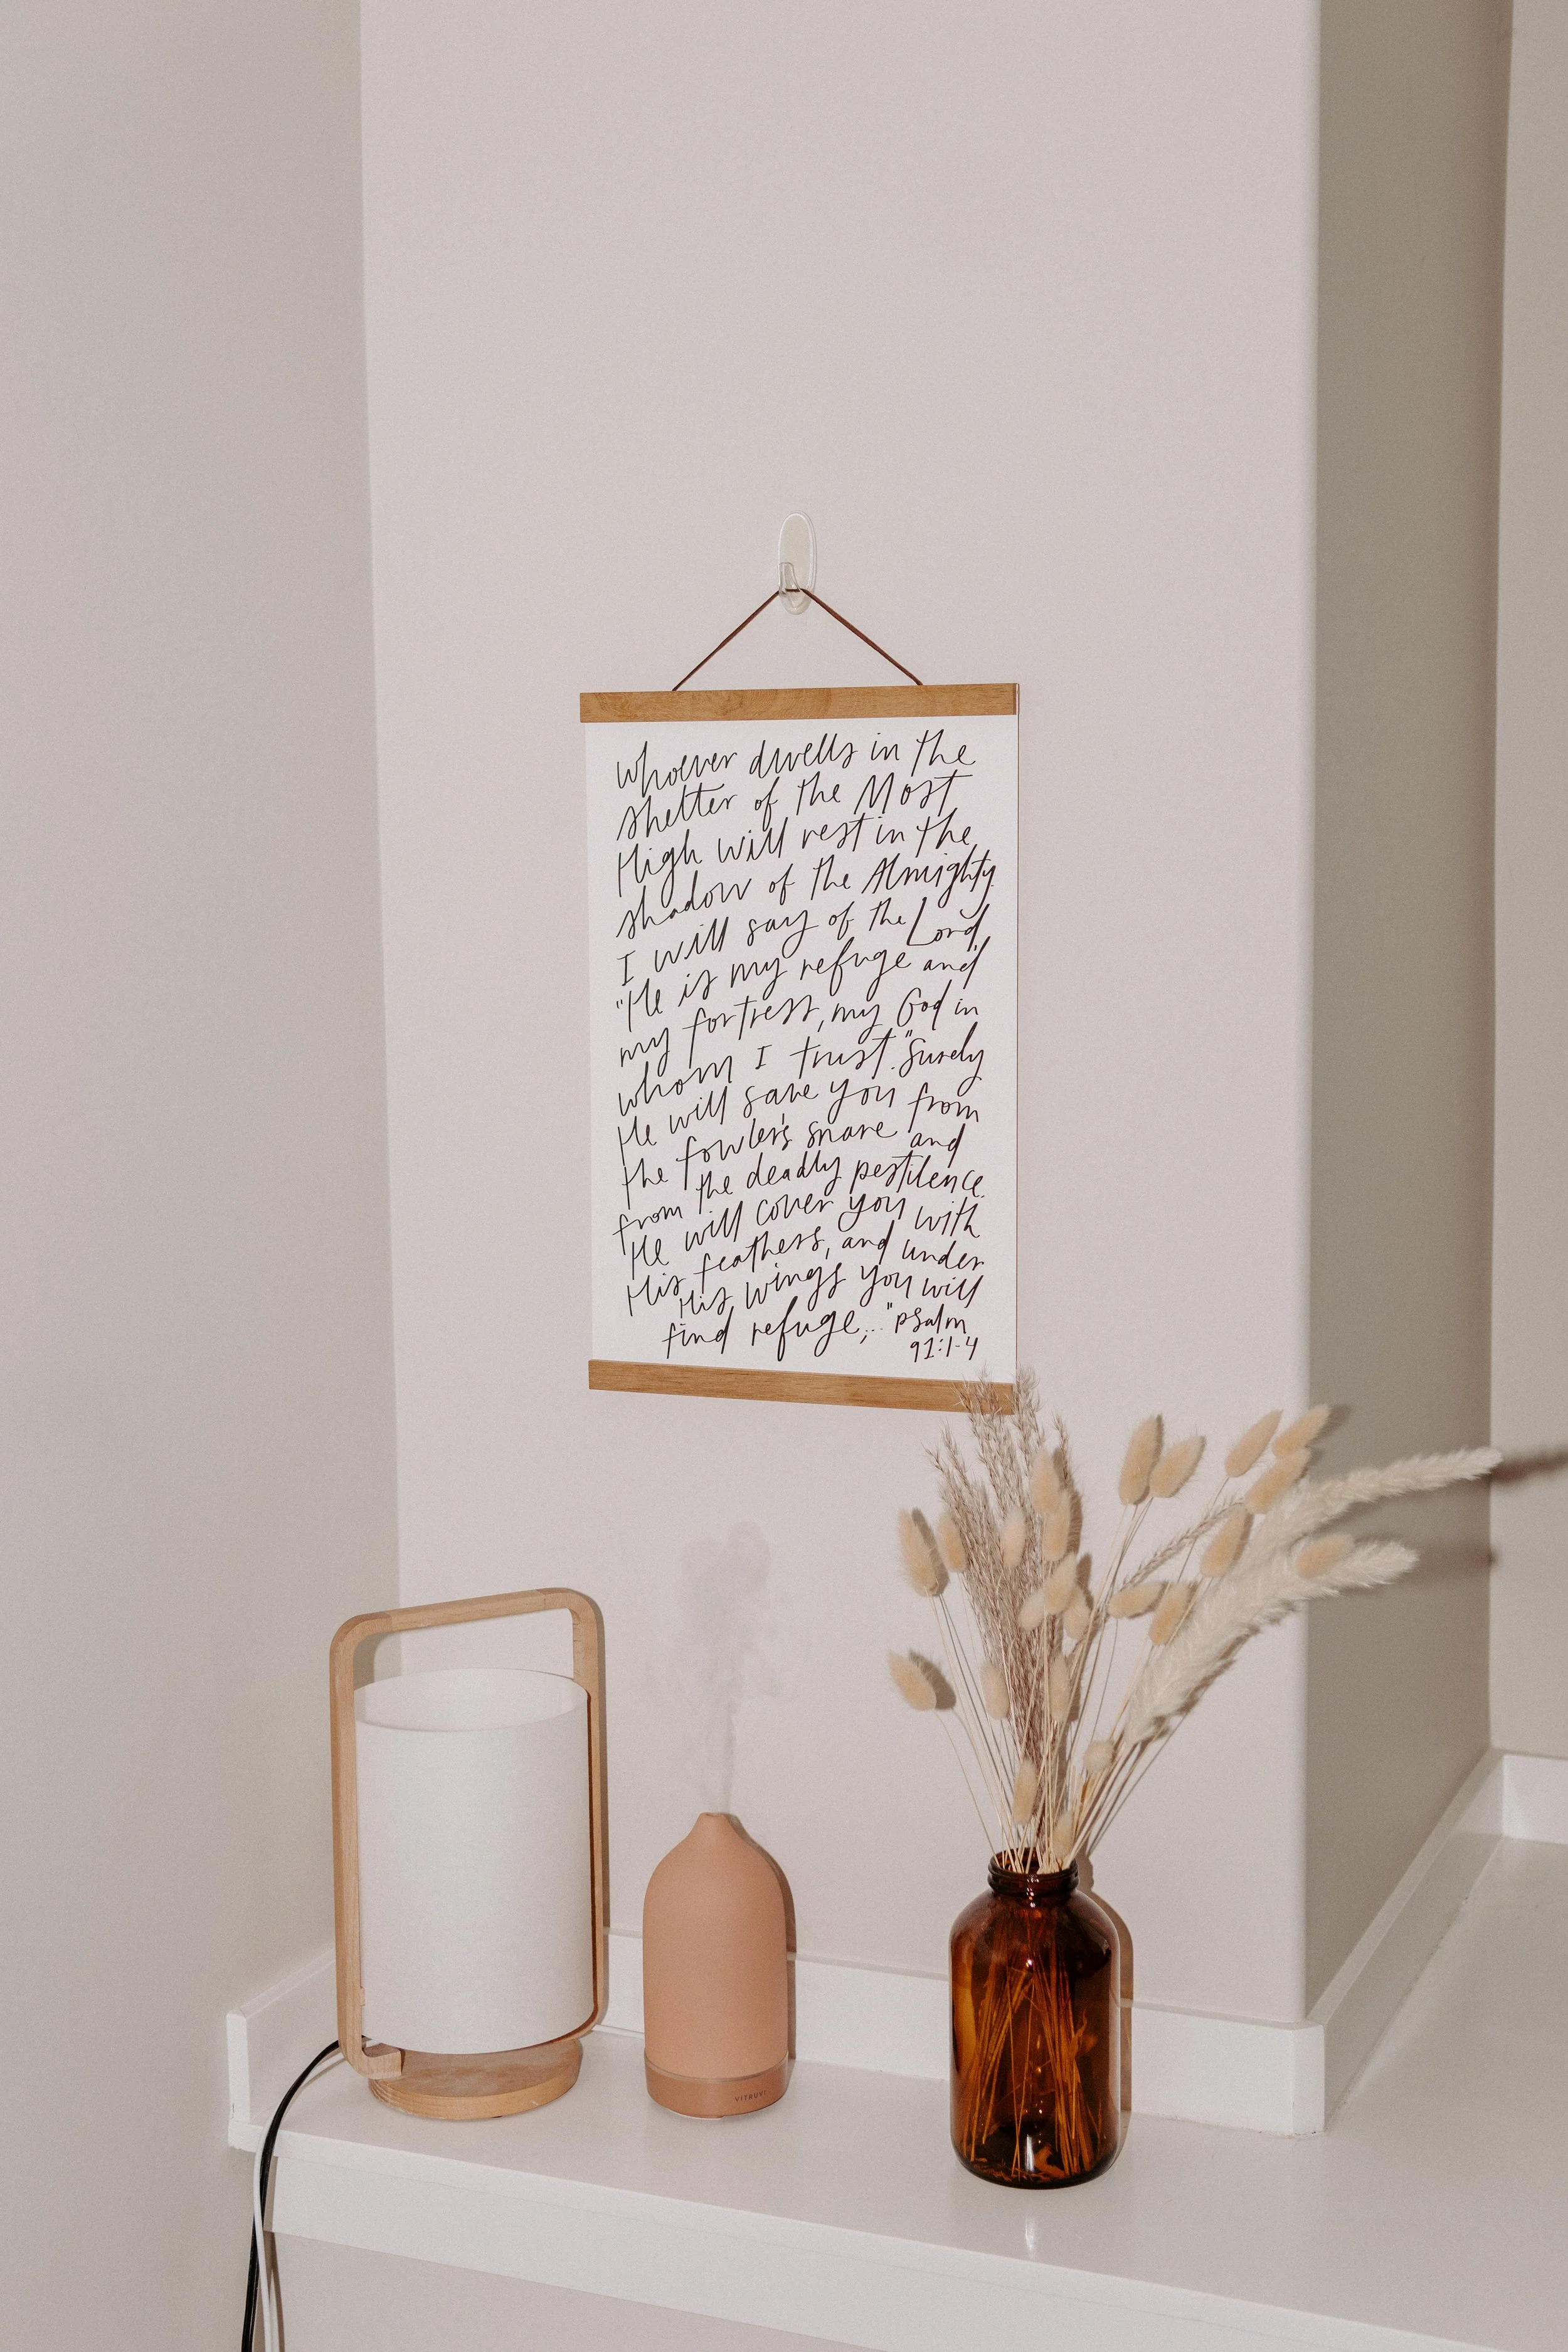 Whoever dwells in the
shelter of the Most
High will rest in the
shadow of the Almighty.
I will say of the Lord,
"He is my refuge and
my fortress, my God in
whom I trust." Surely
He will save you from
the fowler's snare and
from the deadly pestilence.
He will cover you with
His feathers, and under
His wings you will
find refuge;..." psalm
91:1-4
VITRUVI